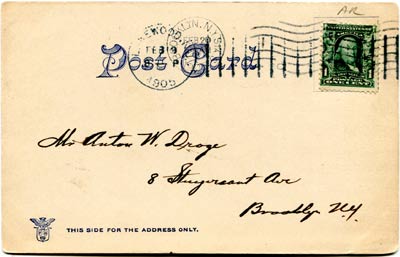 AR
FEB 19
1905
Post Card
1 1
ONE CENT
Mr Anton W. Droge
8 Stuyvesant Ave
Brooklyn N.Y.
THIS SIDE FOR THE ADDRESS ONLY.